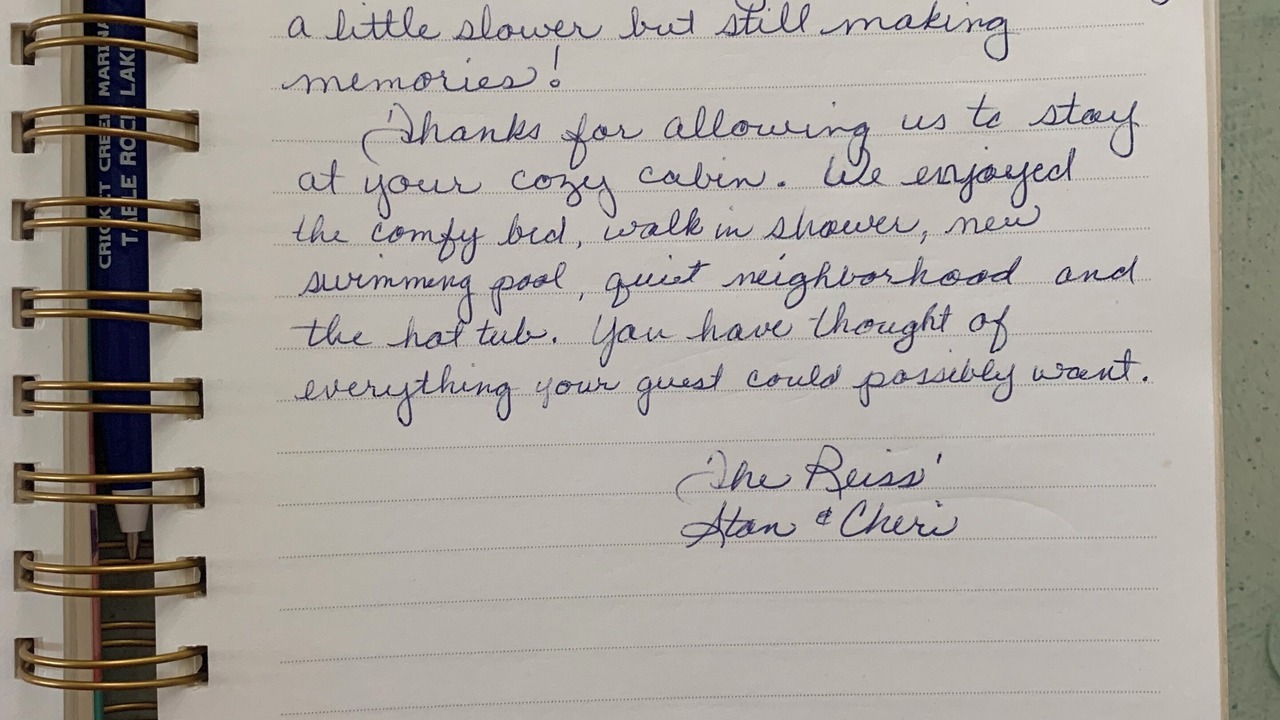 a little slower but still making
memories!
Thanks for allowing us to stay
at your cozy cabin. We enjoyed
the comfy bed, walk in shower, new
swimming pool, quiet neighborhood and
the hot tub. You have thought of
everything your guest could possibly want.
The Reiss'
Stan & Cheri
CRICKET CREEK MARINA
TABLE ROCK LAKE